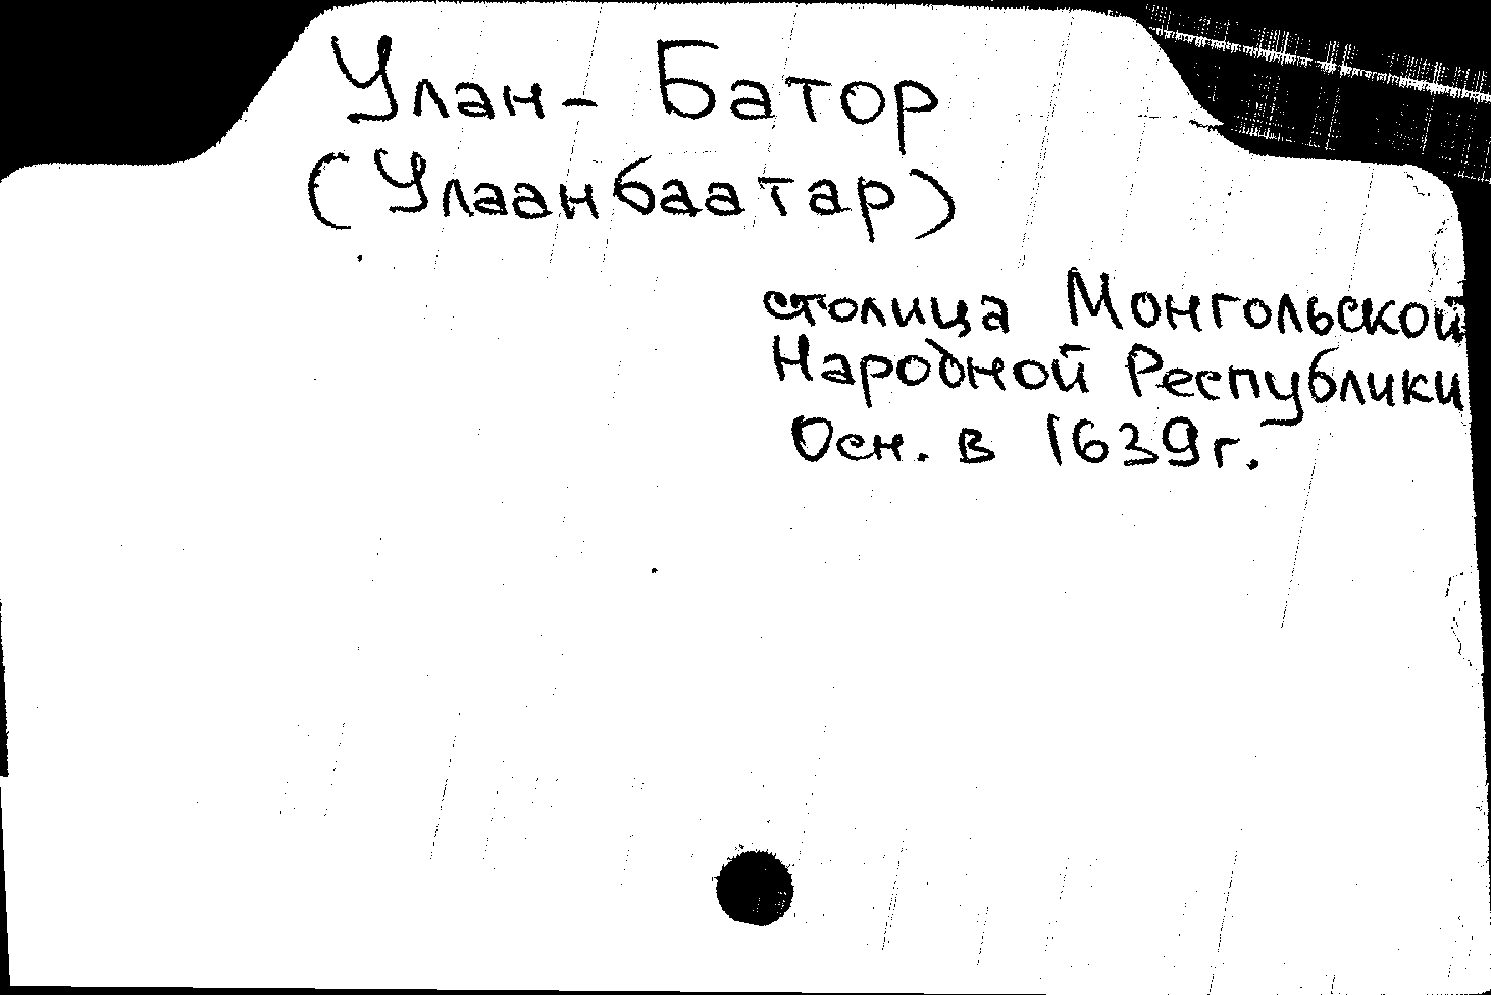 Улан-Батор
(Улаанбаатар)
столица Монгольской
Народной Республики
Осн. в 1639г.